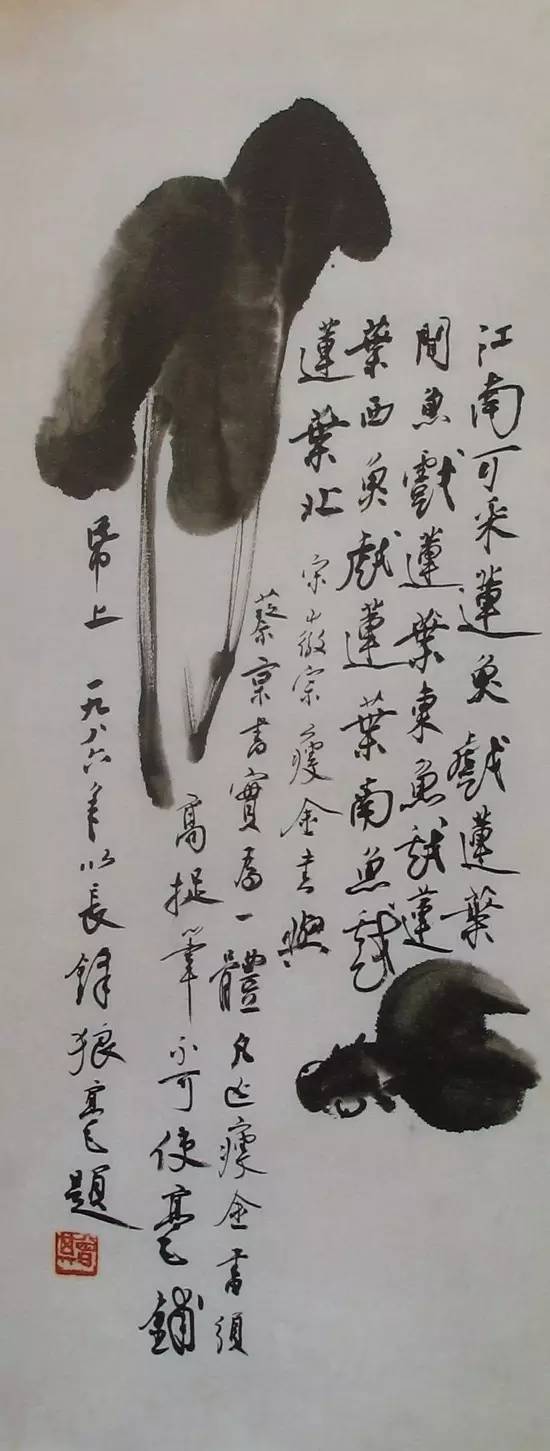 江南可采蓮魚戲蓮葉
間魚戲蓮葉東魚戲蓮
葉西魚戲蓮葉南魚戲
蓮葉北 宋徽宗瘦金書與
蔡京書實為一體凡作瘦金書須
高捉筆不可使毫鋪
帋上 一九八六年以長鋒狼毫題